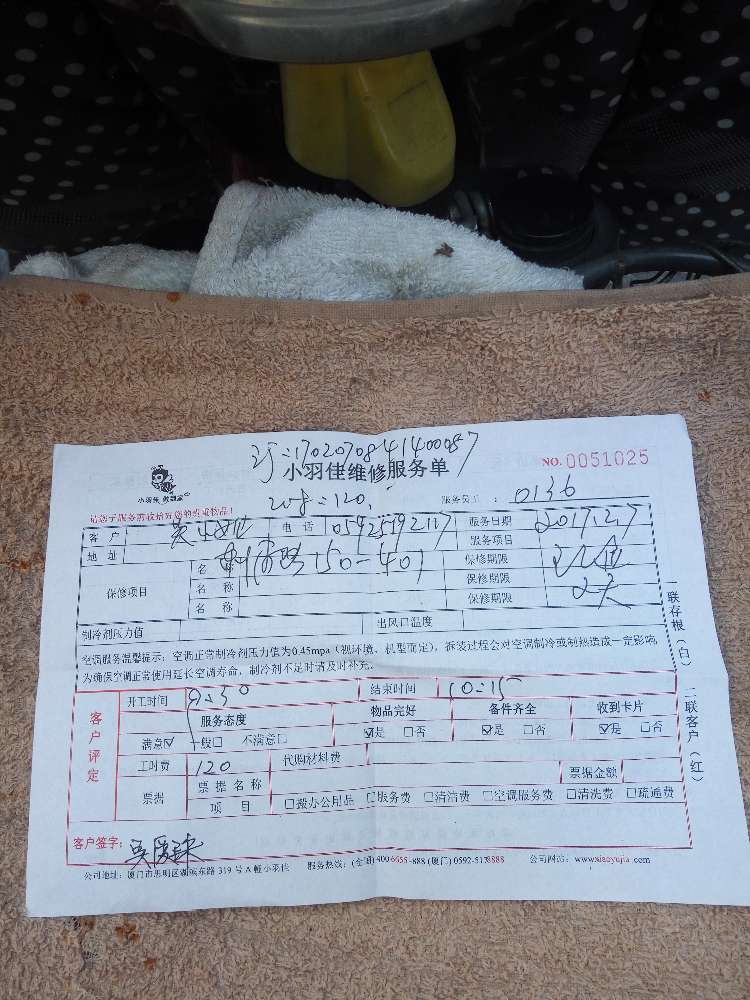 170207084140087
小羽佳维修服务单
NO. 0051025
小羽佳
请您于服务前收拾好您的贵重物品!
服务员工: 0136
客户 电话 05925192117 服务日期 2017.2.7
地址 150-401 服务项目
保修项目 名称 保修期限
名称 保修期限
名称 保修期限 2天
制冷剂压力值 出风口温度
空调服务温馨提示: 空调正常制冷剂压力值为0.45mpa (视环境、机型而定), 拆装过程会对空调制冷或制热造成一定影响
为确保空调正常使用延长空调寿命, 制冷剂不足时请及时补充.
客户评定
开工时间 9:30 结束时间 10:15
服务态度 物品完好 备件齐全 收到卡片
满意☑ 一般□ 不满意□ ☑是 □否 ☑是 □否 ☑是 □否
工时费 120 代购材料费
票据 票据名称 票据金额
项目 □搬办公用品 □服务费 □清洁费 □空调服务费 □清洗费 □疏通费
客户签字:
公司地址: 厦门市思明区湖滨东路 319 号 A 幢小羽佳 服务热线: (全国)400 6655-888 (厦门) 0592-5178888 公司网站: www.xiaoyujia.com
一联存根(白) 二联客户(红)